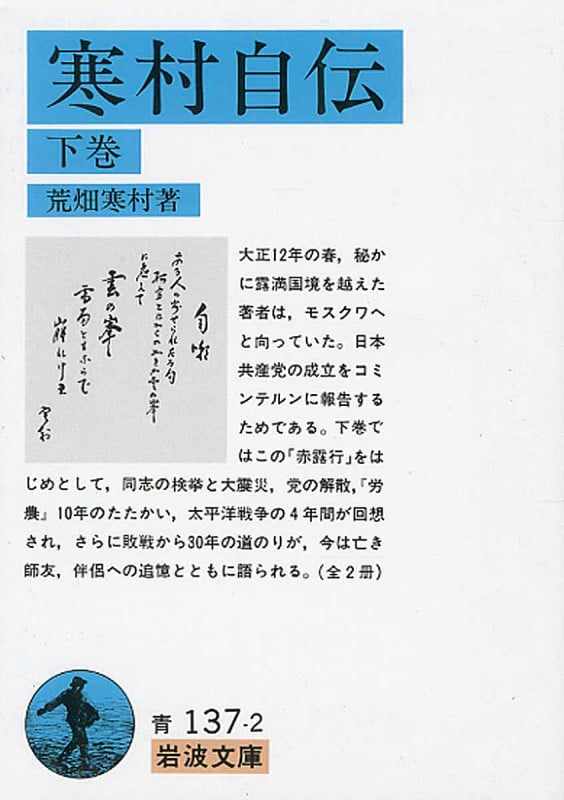 寒村自伝
下巻
荒畑寒村著
自嘲
雲の峯
大正12年の春，秘か
に露満国境を越えた
著者は，モスクワへ
と向っていた。日本
共産党の成立をコミ
ンテルンに報告する
ためである。下巻で
はこの「赤露行」をは
じめとして，同志の検挙と大震災，党の解散，『労
農』10年のたたかい，太平洋戦争の4年間が回想
され，さらに敗戦から30年の道のりが，今は亡き
師友，伴侶への追憶とともに語られる。（全2冊）
青 137-2
岩波文庫